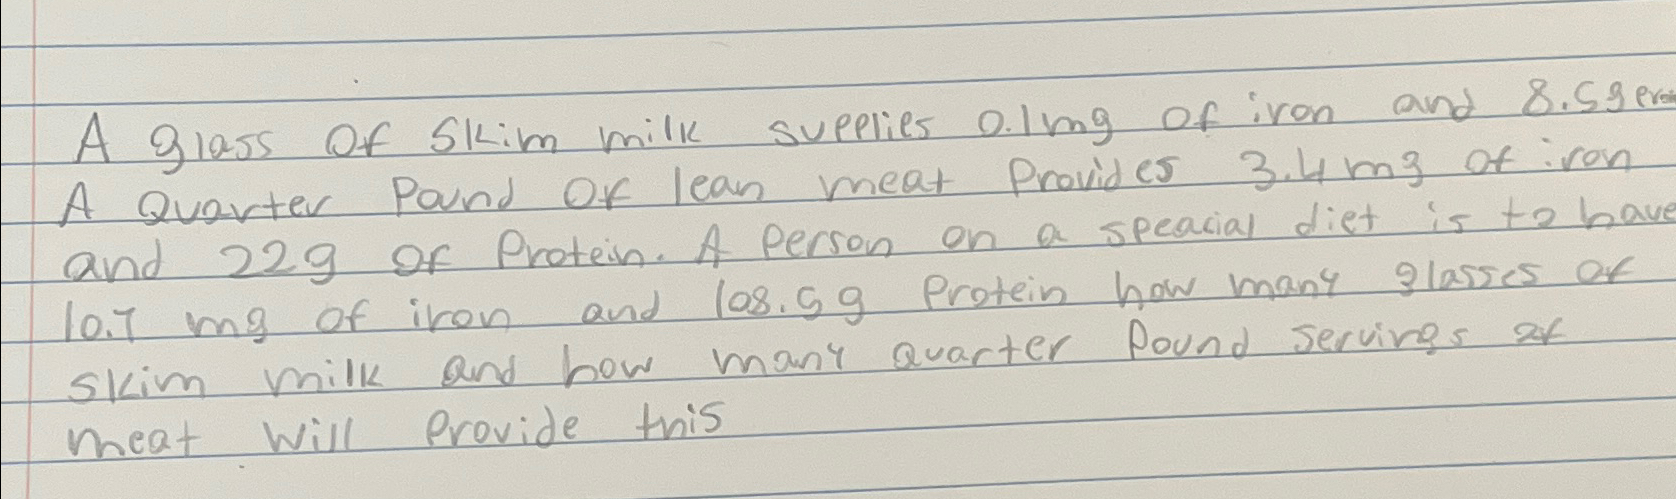 A glass of skim milk supplies 0.1mg of iron and 8.5g
A Quarter Pound of lean meat Provides 3.4mg of iron
and 22g of Protein. A Person on a speacial diet is to have
10.7 mg of iron and 108.5g Protein how many glasses of
skim milk and how many quarter Pound servings of
meat will Provide this